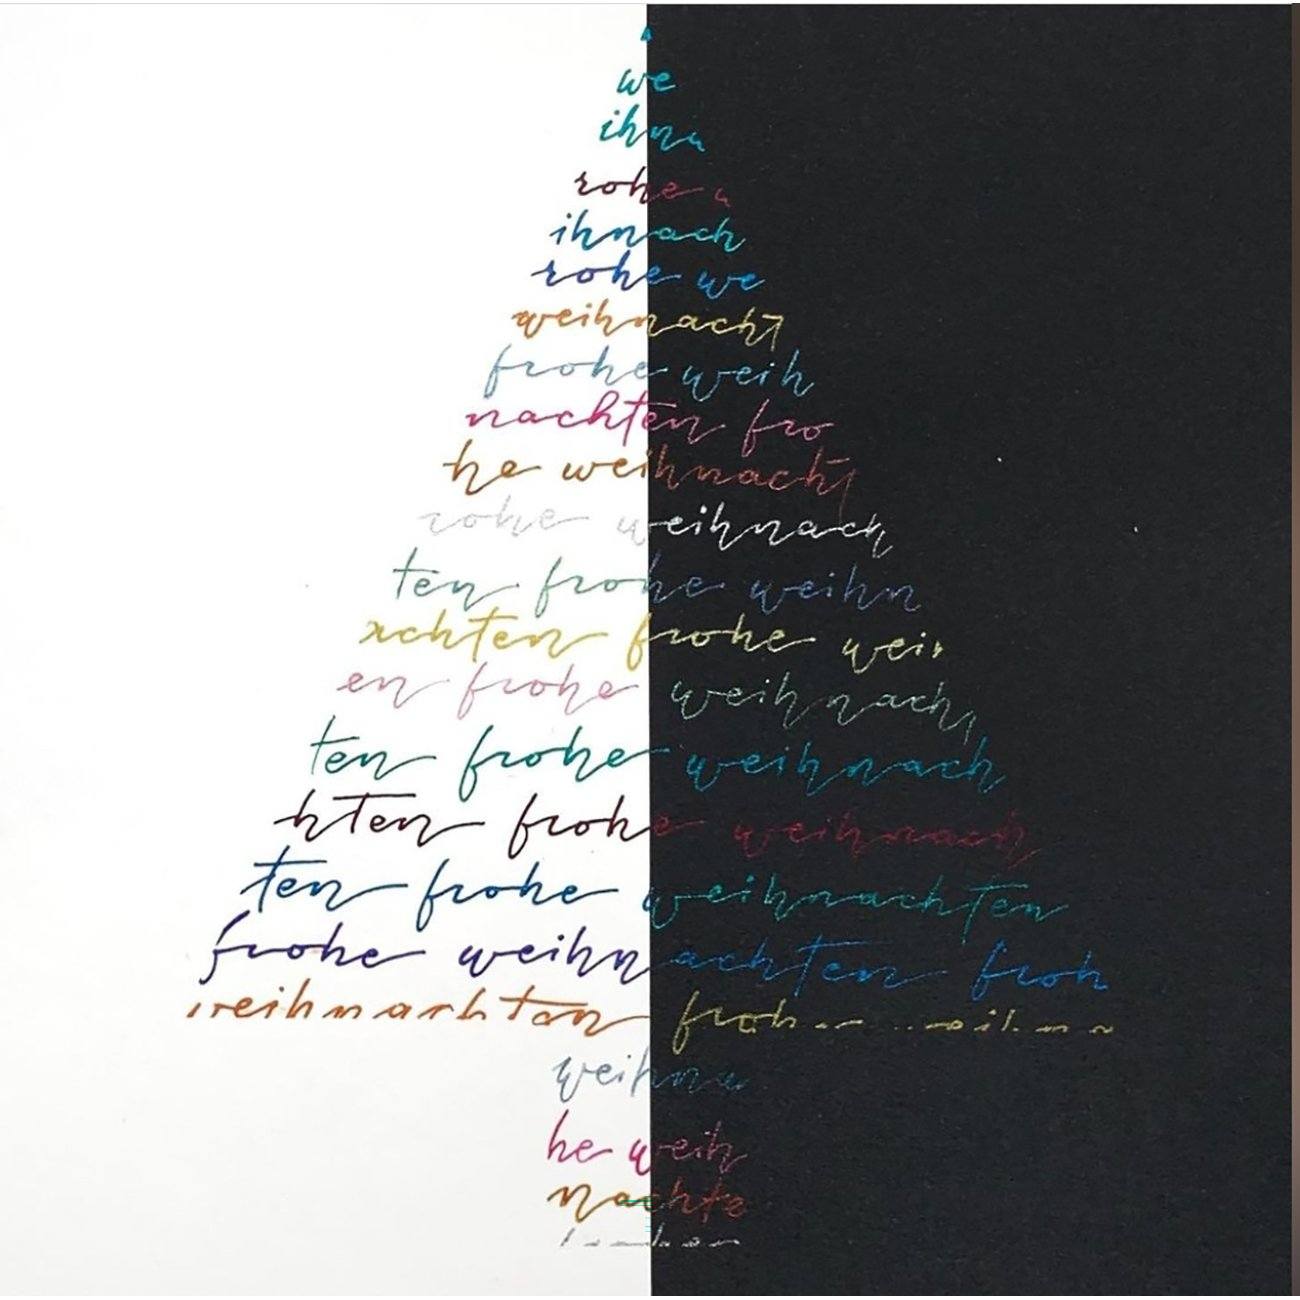 we
ihna
rohe w
ihnach
rohe we
weihnacht
frohe weih
nachten fro
he weihnacht
rohe weihnach
ten frohe weihn
achten frohe wei
en frohe weihnach
ten frohe weihnach
hten frohe weihnach
ten frohe weihnachten
frohe weihnachten froh
weihnachten froh
weihna
he weih
nachte